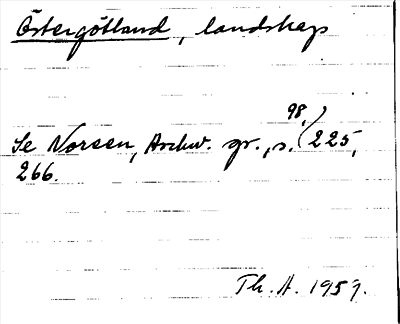 Östergötland, landskap
Se Noreen, Archiv. gr., s. 98, 225,
266.
Th. A. 1959.